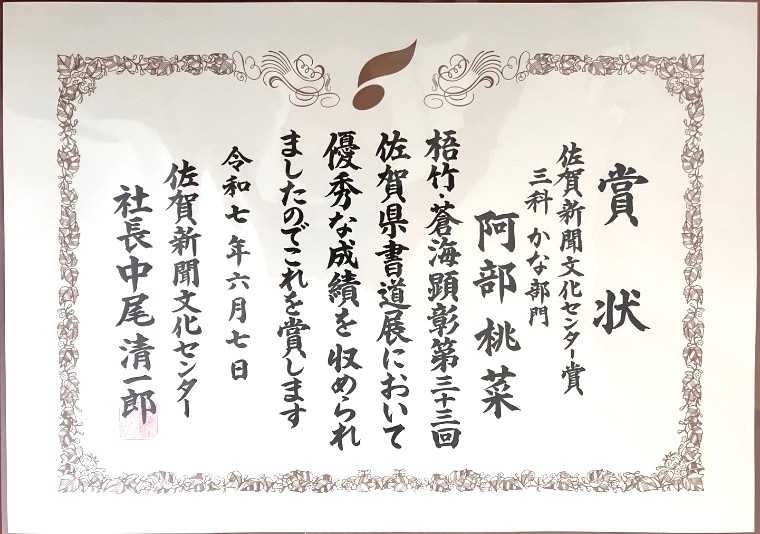 賞状
佐賀新聞文化センター賞
三科 かな部門
阿部桃菜
梧竹・蒼海顕彰第三十三回
佐賀県書道展において
優秀な成績を収められ
ましたのでこれを賞します
令和七年六月七日
佐賀新聞文化センター
社長中尾清一郎